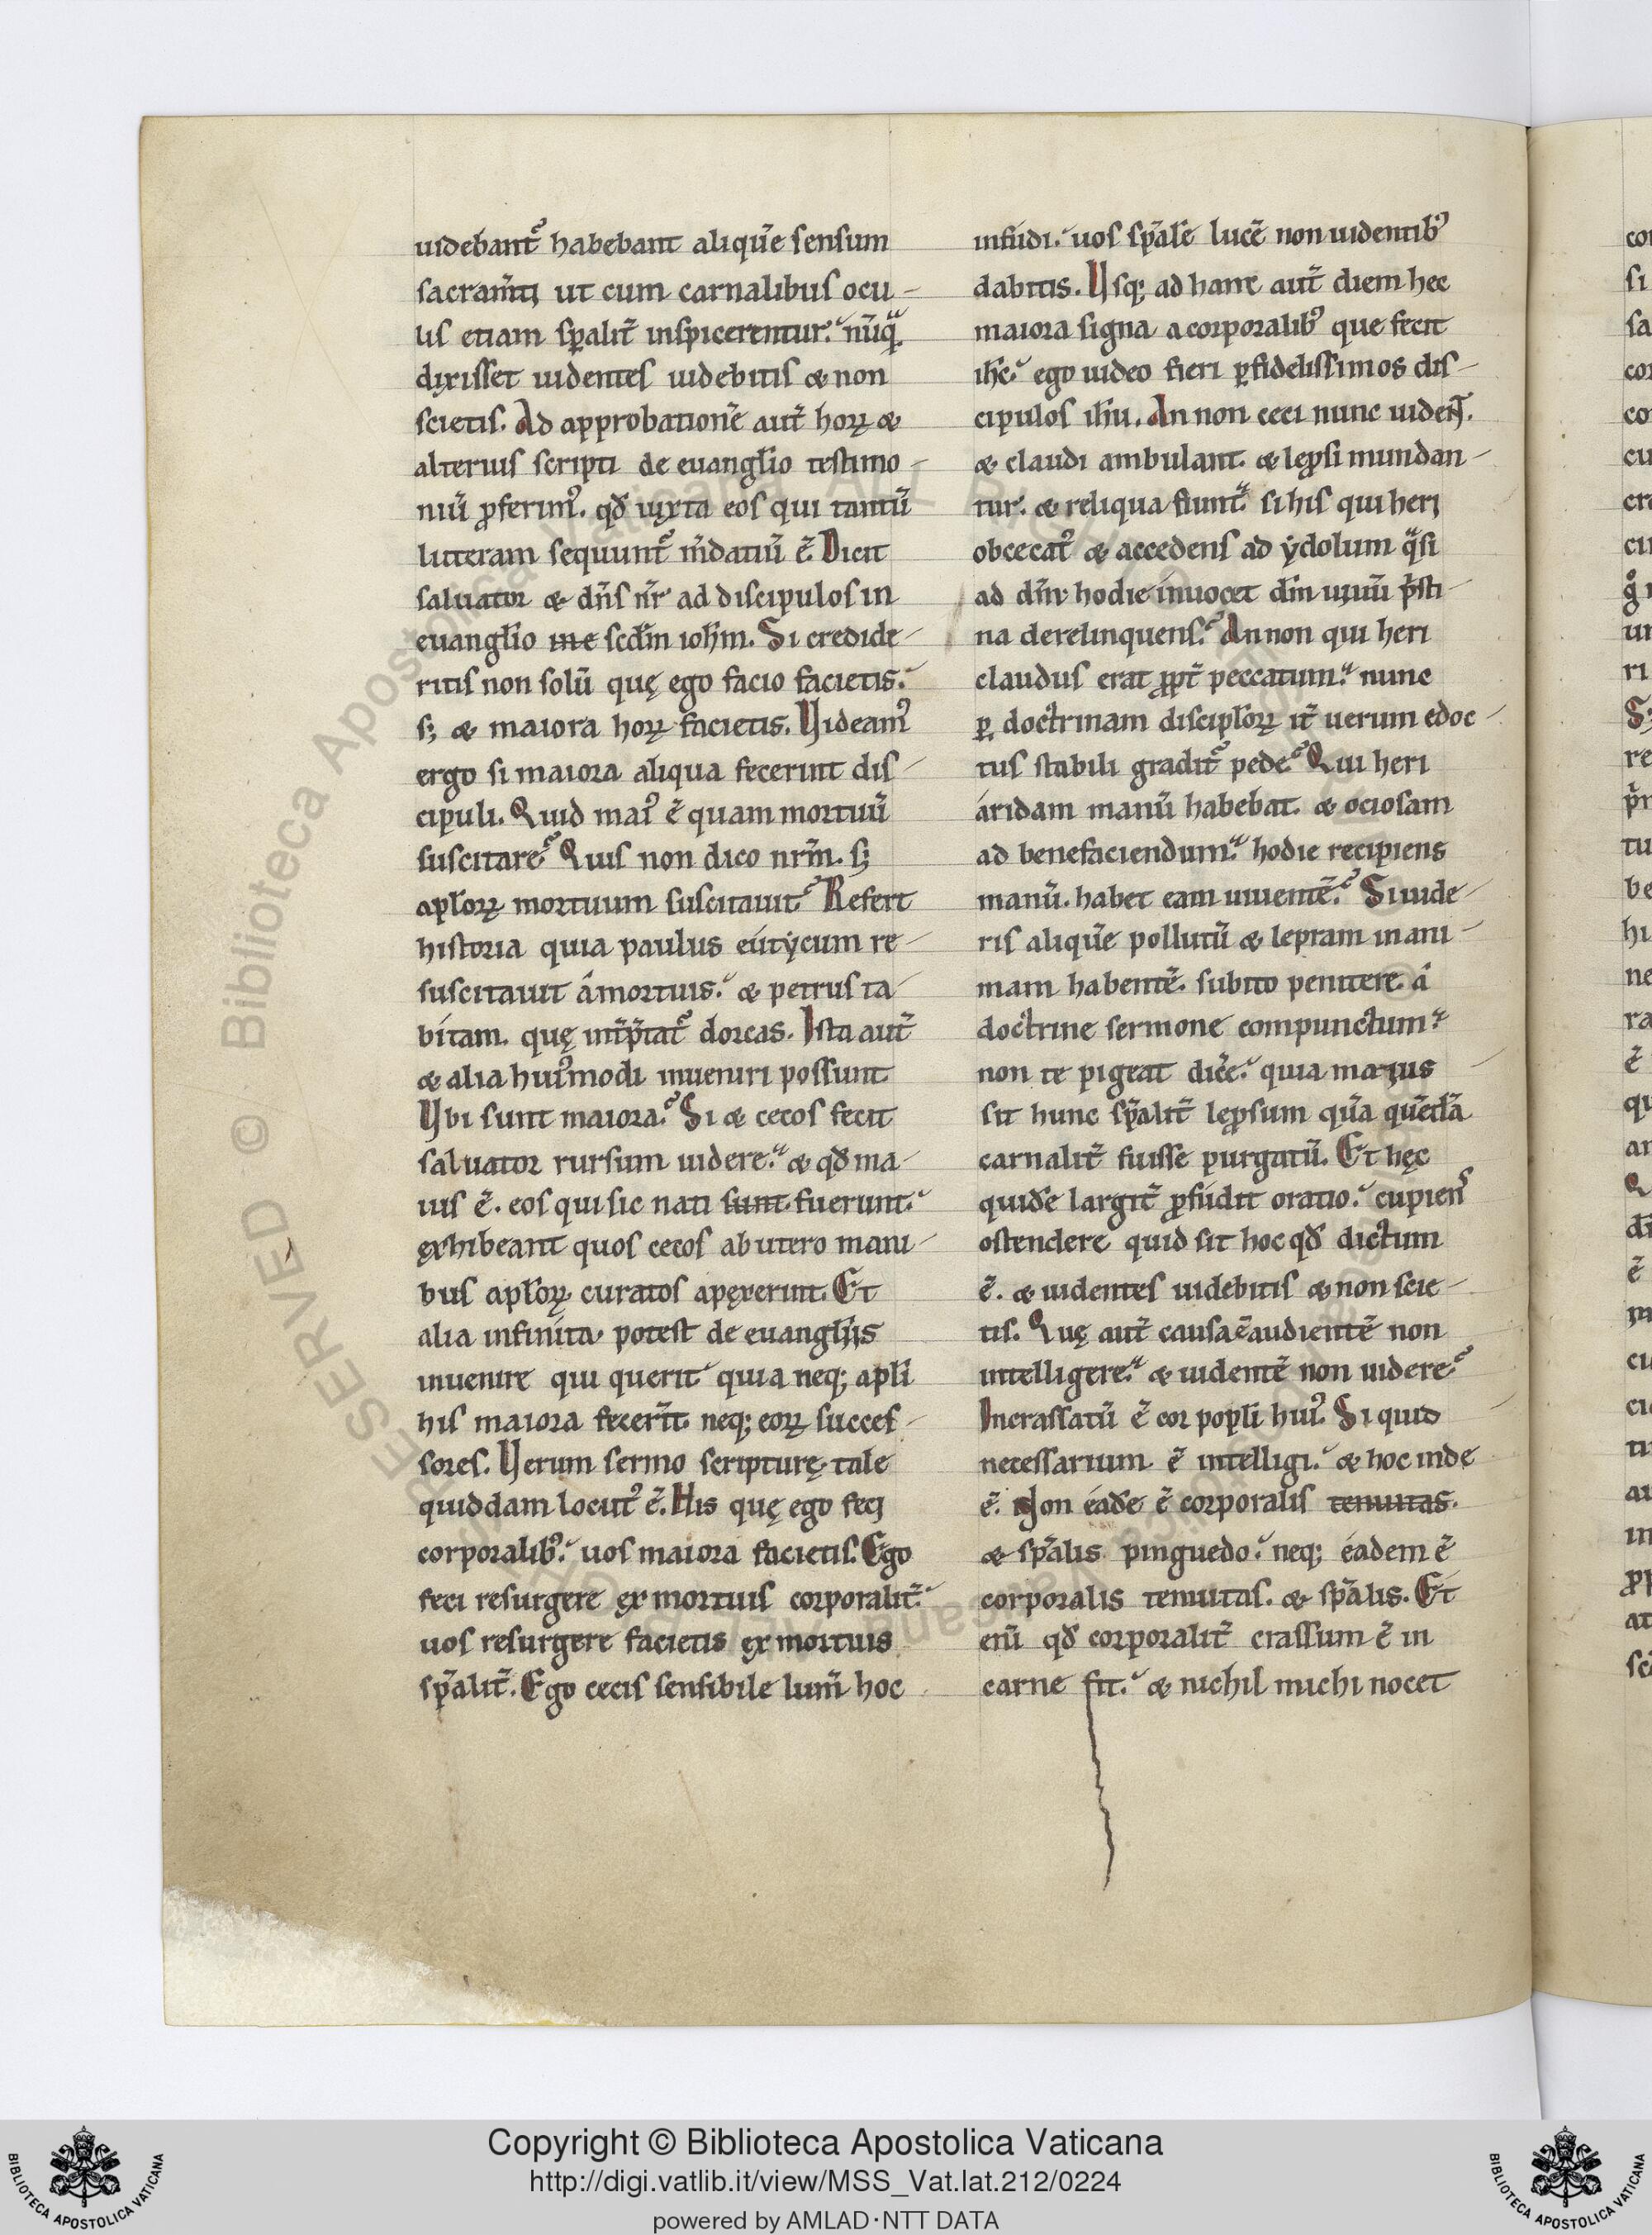 uidebant᷑ habebant aliquē sensum
sacram̅ti, ut cum carnalibus ocu-
lis etiam sp̅alit̅ inspicerentur. nūqͣ
dixisset uidentes uidebitis & non
scietis. Ad approbationē aut̅ hoꝝ &
alterius scripti de euangl̅io testimo-
niū ꝓferimꝰ. qd̅ iuxta eos qui tantū
litteram sequunt᷑ m̅datiū ē. Dicit
saluator & dn̅s nr̅ ad discipulos in
euangl̅io me scd̅m ioh̅m. Si credide-
ritis non solū quę ego facio facietis.
s; & maiora hoꝝ facietis. Uideamꝰ
ergo si maiora aliqua fecerint dis-
cipuli. Quid maiꝰ ē quam mortuū
suscitare? Quis non dico nr̅m. s;
apl̅oꝝ mortuum suscitauit? Refert
historia quia paulus eutẏcum re-
suscitauit a mortuis. & petrus ta
bitam. quę int̅p̅tat᷑ dorcas. Ista aut̅
& alia huiꝰmodi inueniri possunt
Ubi sunt maiora? Si & cecos fecit
saluator rursum uidere. & qd̅ ma-
uis ē. eos qui sic nati sunt fuerunt.
exhibeant quos cecos ab utero mani-
bus apl̅oꝝ curatos apęrerint. Et
alia infinita potest de euangl̅iis
inuenire qui querit quia neq; apl̅i
his maiora fecer̅t. neq; eoꝝ succes-
sores. Uerum sermo scripturę tale
quiddam locutꝰ ē. His quę ego feci
corporalibꝰ. uos maiora facietis. Ego
feci resurgere ex mortuis corporalit̅.
uos resurgere facietis ex mortuis
sp̅alit̅. Ego cecis sensibile lum̅ hoc
infudi. uos sp̅ale lucē non uidentibꝰ
dabitis. Usq; ad hanc aut̅ diem hec
maiora signa a corporalibꝰ que fecit
ih̅c. ego uideo fieri ꝑ fidelissimos dis-
cipulos ih̅u. An non ceci nunc uident̅.
& claudi ambulant. & lep̅si mundan-
tur. & reliqua fiunt. si his qui heri
obcecatꝰ & accedens ad ẏdolum qͣsi
ad dn̅m hodie inuocet dn̅m uiuū p̅sti-
na derelinquens? An non qui heri
claudus erat ꝓpt̅ peccatum. nunc
ꝑ doctrinam discipl̅oꝝ it̅ uerum edoc-
tus stabili gradit᷑ pede? Qui heri
aridam manū habebat. & ociosam
ad benefaciendum. hodie recipiens
manū. habet eam uiuentē? Si uide-
ris aliquē pollutū & lepram in ani-
mam habentē. subito penitere. a
doctrine sermone compunctum.
non te pigeat dic̅e. quia maius
sit hunc sp̅alit̅ lep̅sum qua quēda̅
carnalit̅ fuisse purgatū. Et hęc
quide largit̅ ꝓfudit oratio. cupienſ
ostendere quid sit hoc qd̅ dictum
ē. & uidentes uidebitis & non scie-
tis. Quę aut̅ causa ē audientē non
intelligere. & uidentē non uidere?
Incrassatū ē cor popl̅i huiꝰ. Si quid
necessarium ē intelligi. & hoc inde
ē. Non eade ē corporalis tenuitas.
& sp̅alis pinguedo. neq; eadem ē
corporalis tenuitas. & sp̅alis. Et
enī qd̅ corporalit̅ crassum ē in
carne fit. & nichil michi nocet
© Biblioteca Apostolica Vaticana
Copyright © Biblioteca Apostolica Vaticana
http://digi.vatlib.it/view/MSS_Vat.lat.212/0224
powered by AMLAD·NTT DATA
BIBLIOTECA APOSTOLICA VATICANA
BIBLIOTECA APOSTOLICA VATICANA